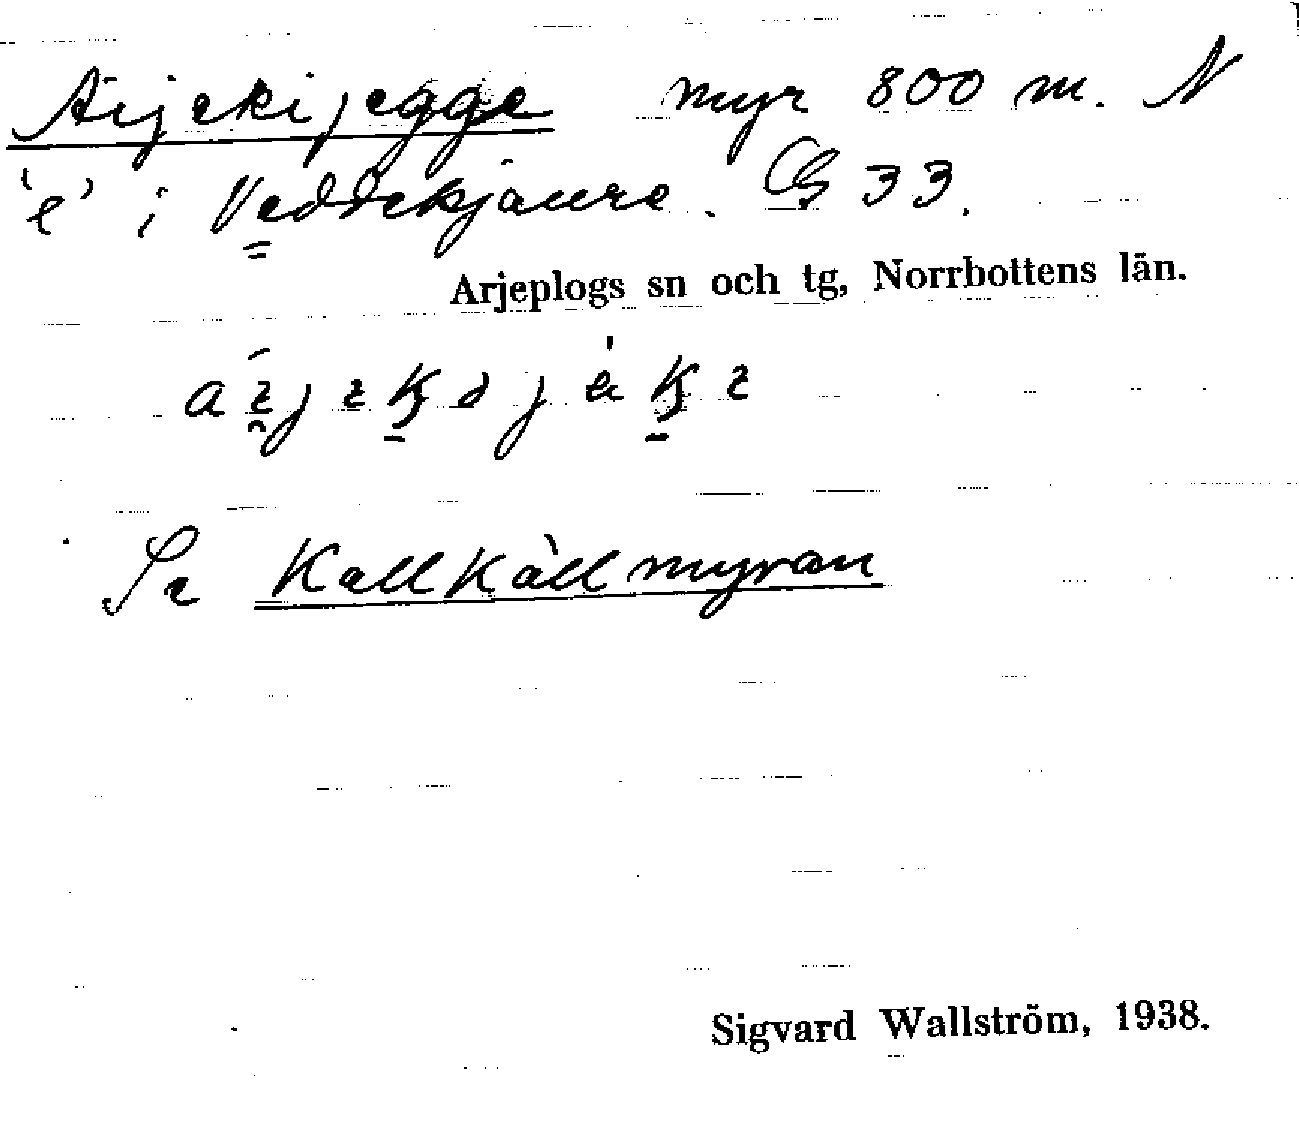 Arjekijegge myr 800 m. N
'e' i Veddekjaure. G 33.
Arjeplogs sn och tg, Norrbottens län.
Se Kallkällmyran
Sigvard Wallström, 1938.